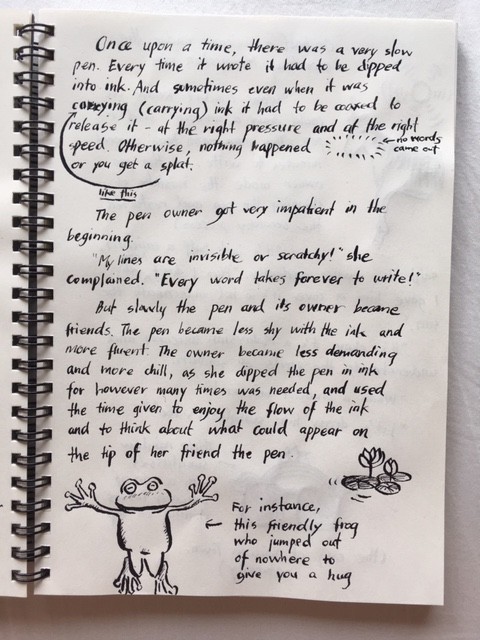 Once upon a time, there was a very slow
pen. Every time it wrote it had to be dipped
into ink. And sometimes even when it was
carrying (carrying) ink it had to be coaxed to
release it - at the right pressure and at the right
speed. Otherwise, nothing happened
← no words
came out
or you get a splat.
like this
The pen owner got very impatient in the
beginning.
"My lines are invisible or scratchy!" she
complained. "Every word takes forever to write!"
But slowly the pen and its owner became
friends. The pen became less shy with the ink and
more fluent. The owner became less demanding
and more chill, as she dipped the pen in ink
for however many times was needed, and used
the time given to enjoy the flow of the ink
and to think about what could appear on
the tip of her friend the pen.
For instance,
← this friendly frog
who jumped out
of nowhere to
give you a hug